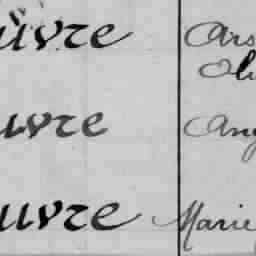 uvre Ars
Oli
uvre Ang
uvre Marie